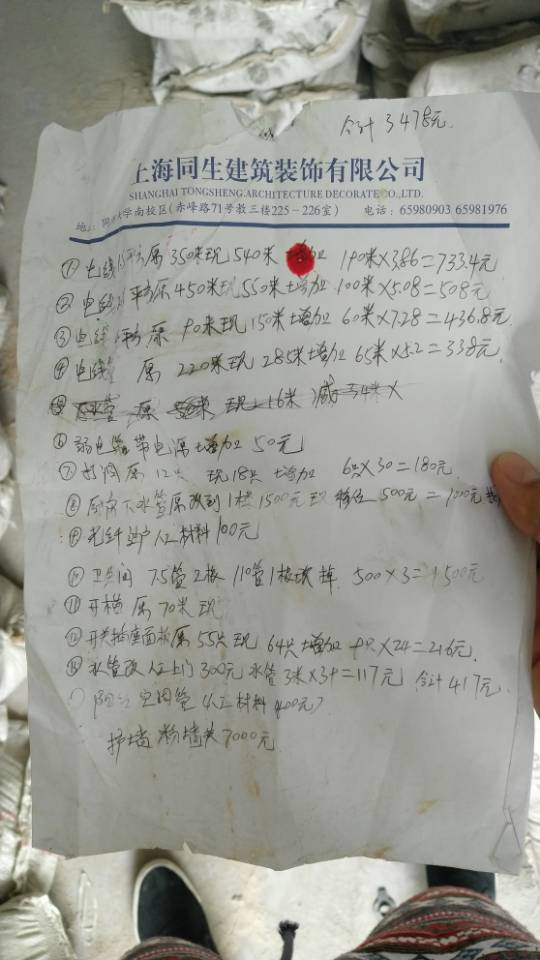 合计3478元.
上海同生建筑装饰有限公司
SHANGHAI TONGSHENG.ARCHITECTURE DECORATE CO.,LTD.
地址: 大学南校区(赤峰路71号教三楼225-226室) 电话: 65980903 65981976
① 电线 平方原350米现540米 增加 190米×3.86=733.4元
② 电线 平方原450米现550米增加 100米×5.08=508元
③ 电线 平方原 90米现150米增加 60米×7.28=436.8元
④ 电线 原 220米现 285米增加 65米×5.2=338元
水管 原 米 现 16米 减 34米×
⑥ 弱电箱带电源增加50元
⑦ 原12只 现18只 增加 6只×30=180元
⑧ 厨房下水管原改到1楼1500元现 移位500元=1000元
⑨ 光纤进户人工材料100元
⑩ 卫生间 75管2根 110管1根 500×3=1500元
⑪ 开槽 原70米现
⑫ 开关插座面板原55只现 64只增加 9只×24=216元
⑬ 水管改人工上门300元 水管3米×39=117元 合计417元
阳台 空调管(人工材料400元)
护墙 粉墙 7000元